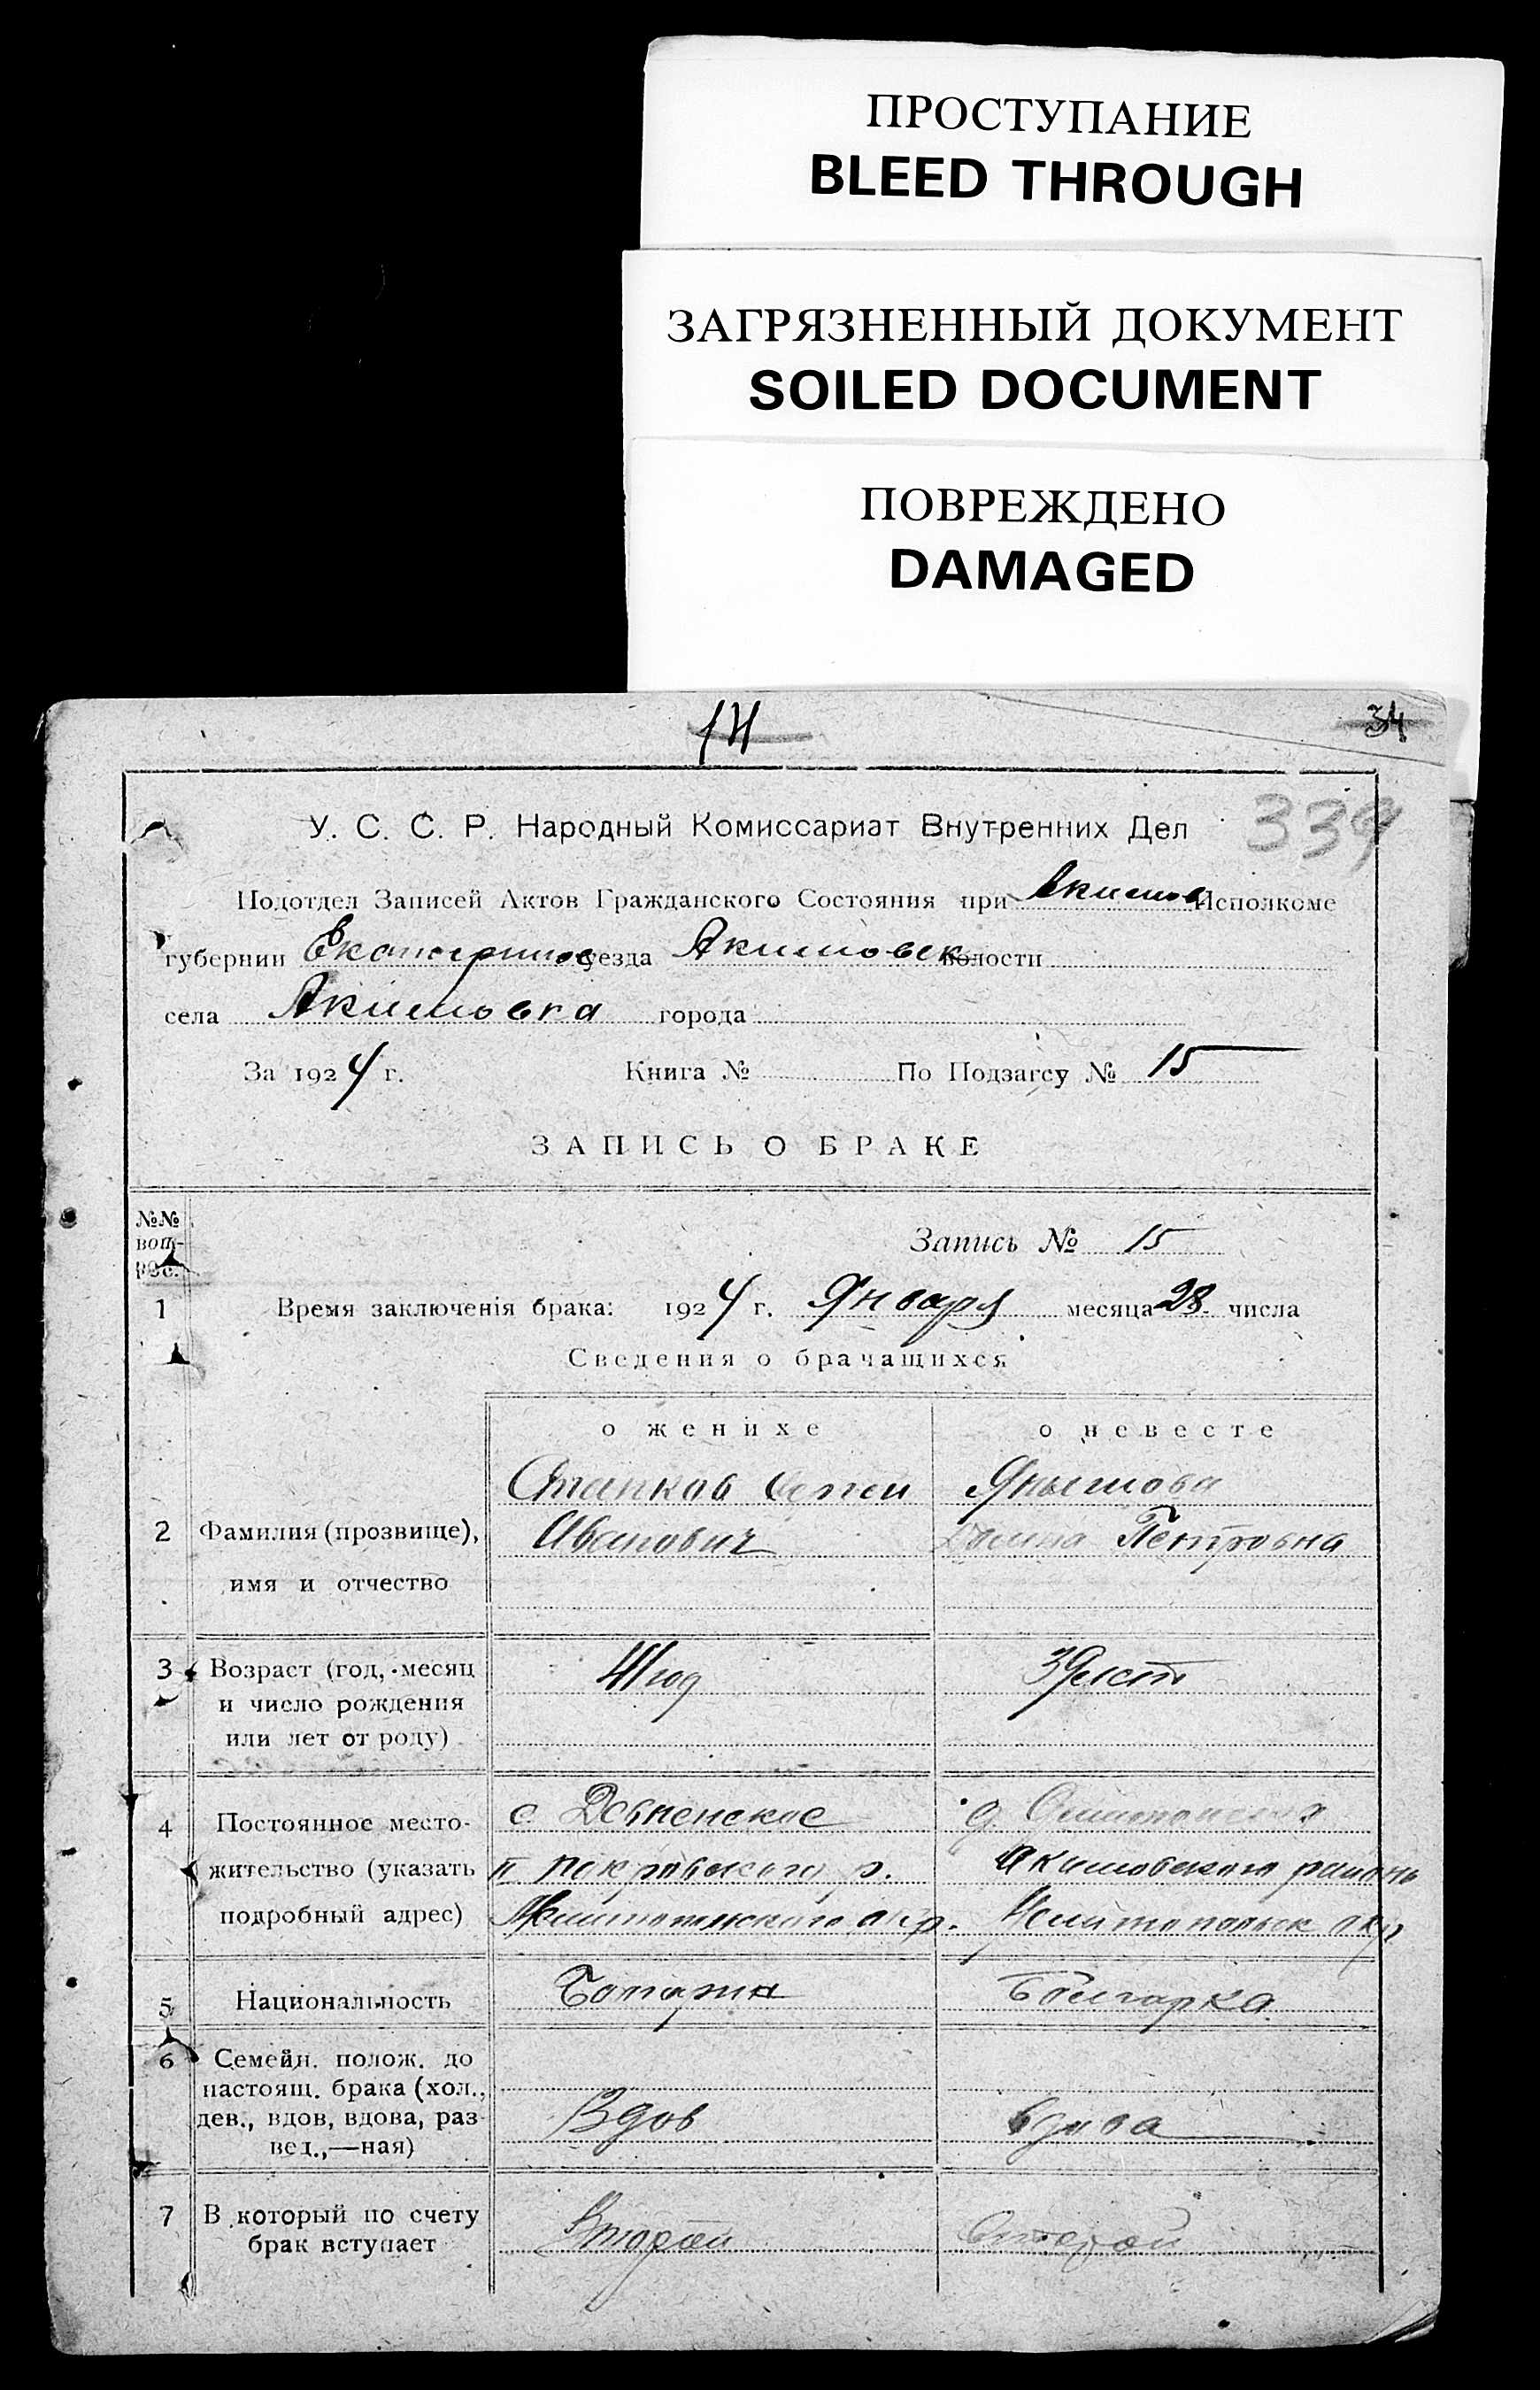 ПРОСТУПАНИЕ
BLEED THROUGH
ЗАГРЯЗНЕННЫЙ ДОКУМЕНТ
SOILED DOCUMENT
ПОВРЕЖДЕНО
DAMAGED
14 34
339
У. С. С. Р. Народный Комиссариат Внутренних Дел
Подотдел Записей Актов Гражданского Состояния при Акимов Исполкоме
губернии Екатеринос уезда Акимовск волости
села Акимовка города
За 1924 г. Книга № По Подзагсу № 15
ЗАПИСЬ О БРАКЕ
№№ вопрос. Запись № 15
1 Время заключенія брака: 1924 г. Января месяца 28 числа
Сведения о брачащихся
о женихе о невесте
Станков Янышова
2 Фамилия (прозвище), Иванович Петровна
имя и отчество
3 Возраст (год, месяц 41 год 39 лет
и число рождения
или лет от роду)
4 Постоянное место- с. д.
жительство (указать II Покровского р. Акимовского района
подробный адрес) Мелитопольского окр. Мелитопольск окр
5 Национальность Болгарин Болгарка
6 Семейн. полож. до
настоящ. брака (хол.,
дев., вдов, вдова, раз- Вдов вдова
вед.,—ная)
7 В который по счету
брак вступает Второй Второй